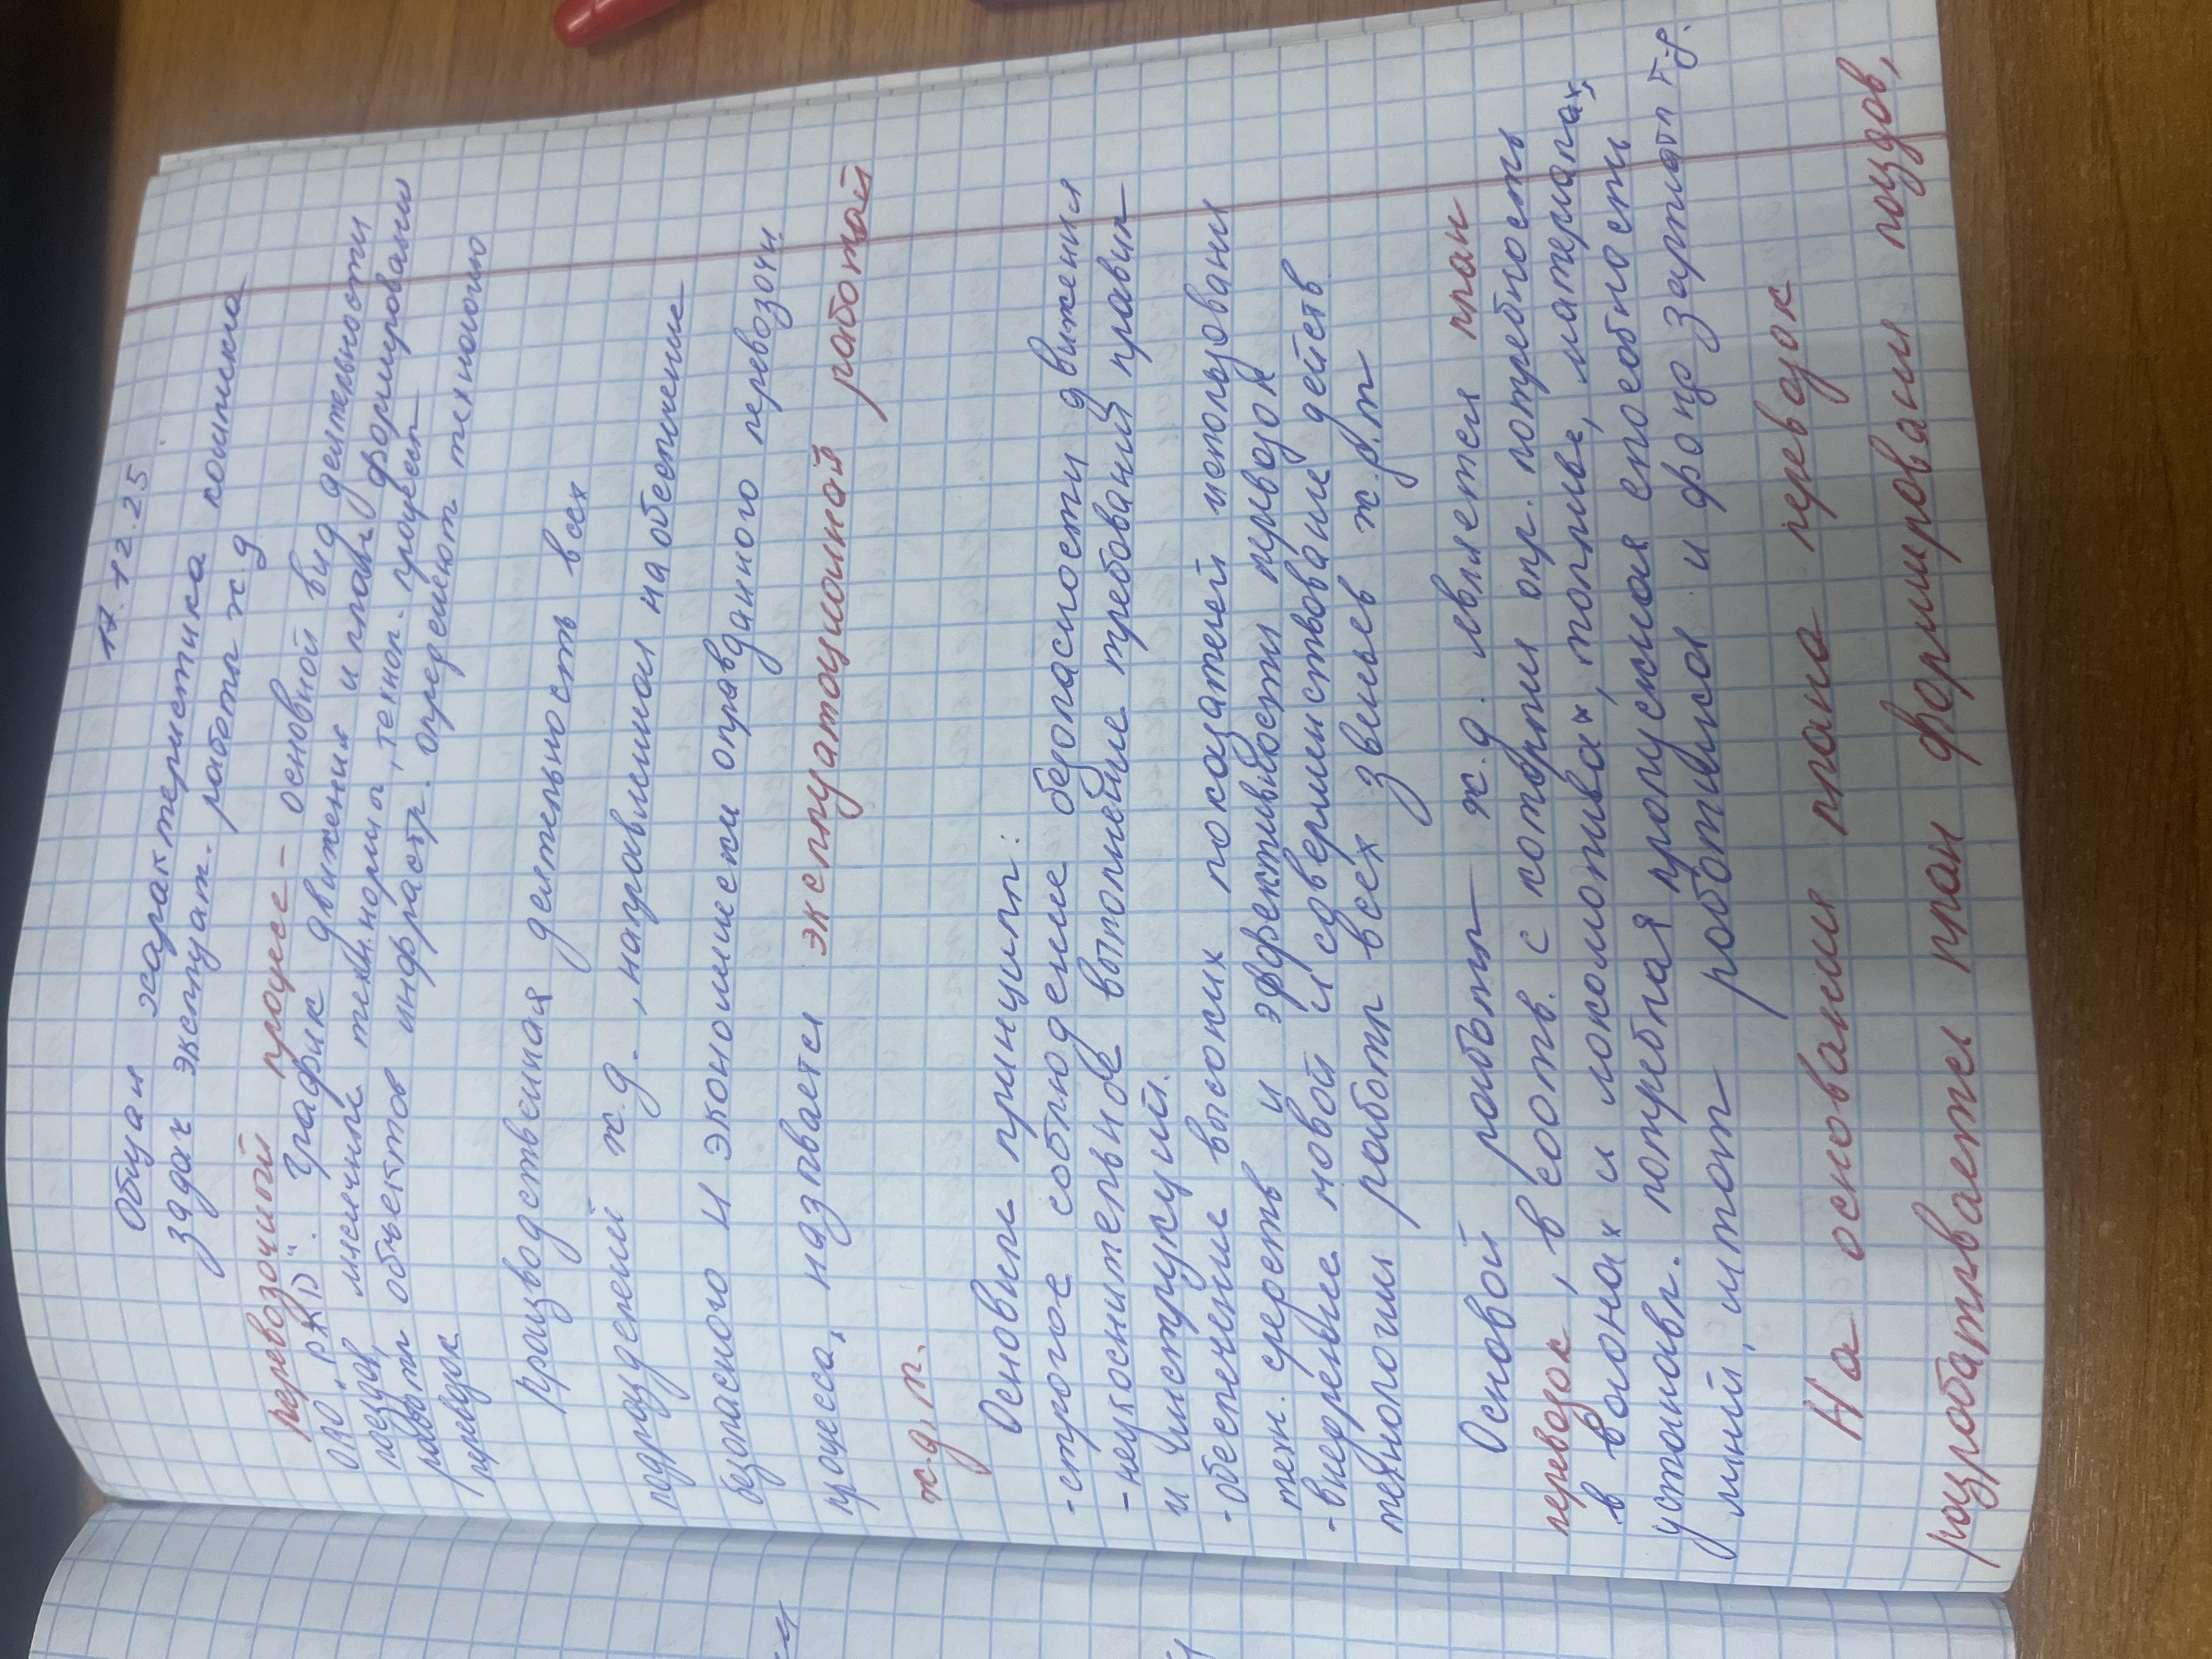 17.12.25
Общая характеристика комплекса
задач эксплуат. работы ж.д
перевозочный процесс - основной вид деятельности
ОАО "РЖД". График движения и планы формирования
поездов, техн. нормы, технол. процесст
работы объектов инфрастр. определяют технологию
перевозок
Производственная деятельность всех
подразделений ж.д., направленная на обеспечение
безопасного и экономически оправданного перевозочн.
процесса, называется эксплуатационной работой
ж.д.т.
Основные принципы:
-строгое соблюдение безопасности движения
-неукоснительное выполнение требований правил
и инструкций.
-обеспечение высоких показателей использования
техн. средств и эффективности перевозок
-внедрение новой и совершенствование действ
технологии работы всех звеньев ж.д.т
Основой работы ж.д. является план
перевозок, в соотв. с которым опр. потребность
в вагонах и локомотивах, топливе, материалах,
устанавл. потребная пропускная способность
линий, штат работников и фонд зарплаты т-д.
На основании плана перевозок
разрабатывается план формирования поездов,